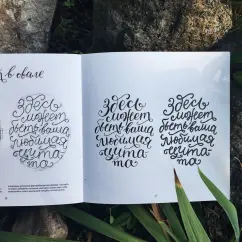 в овале
Здесь
может
быть ваша
любимая
цита-
та
Здесь
может
быть ваша
любимая
цита-
та
Здесь
может
быть ваша
любимая
цита-
та